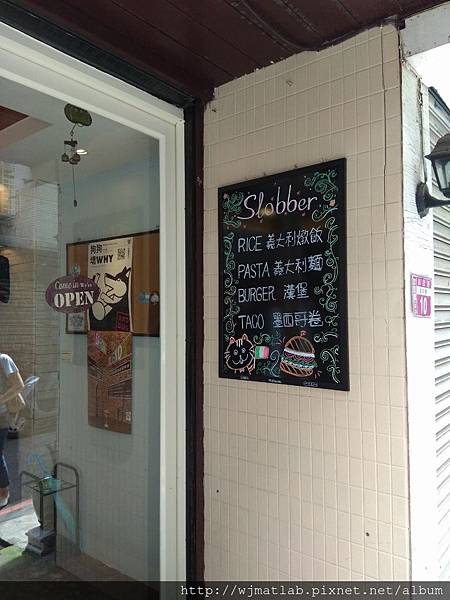 Slobber
RICE 義大利燉飯
PASTA 義大利麵
BURGER 漢堡
TACO 墨西哥卷
狗狗
WHY
Come in We're
OPEN
10
http://wjmatlab.pixnet.net/album